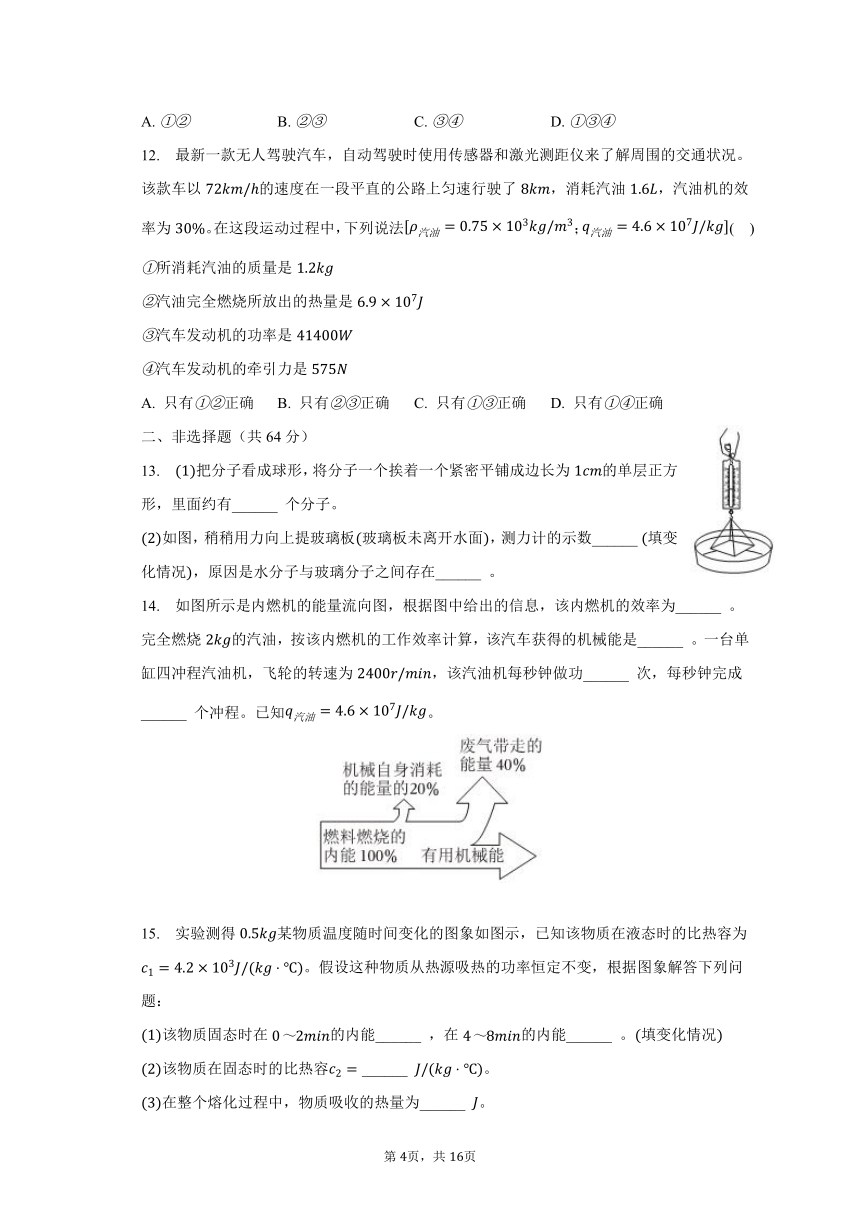 A. ①② B. ②③ C. ③④ D. ①③④
12. 最新一款无人驾驶汽车，自动驾驶时使用传感器和激光测距仪来了解周围的交通状况。
该款车以 72km/h的速度在一段平直的公路上匀速行驶了 8km，消耗汽油 1.6L，汽油机的效
率为 30%。在这段运动过程中，下列说法[ρ汽油 = 0.75 × 10³kg/m³；q汽油 = 4.6 × 10⁷J/kg]( )
①所消耗汽油的质量是 1.2kg
②汽油完全燃烧所放出的热量是 6.9 × 10⁷J
③汽车发动机的功率是 41400W
④汽车发动机的牵引力是 575N
A. 只有①②正确 B. 只有②③正确 C. 只有①③正确 D. 只有①④正确
二、非选择题（共 64 分）
13. (1)把分子看成球形，将分子一个挨着一个紧密平铺成边长为 1cm的单层正方
形，里面约有______ 个分子。
(2)如图，稍稍用力向上提玻璃板(玻璃板未离开水面)，测力计的示数______ (填变
化情况)，原因是水分子与玻璃分子之间存在______ 。
14. 如图所示是内燃机的能量流向图，根据图中给出的信息，该内燃机的效率为______ 。
完全燃烧 2kg的汽油，按该内燃机的工作效率计算，该汽车获得的机械能是______ 。一台单
缸四冲程汽油机，飞轮的转速为 2400r/min，该汽油机每秒钟做功______ 次，每秒钟完成
______ 个冲程。已知q汽油 = 4.6 × 10⁷J/kg。
废气带走的
能量 40%
机械自身消耗
的能量的20%
燃料燃烧的
内能 100% 有用机械能
15. 实验测得 0.5kg某物质温度随时间变化的图象如图示，已知该物质在液态时的比热容为
c₁ = 4.2 × 10³J/(kg · ℃)。假设这种物质从热源吸热的功率恒定不变，根据图象解答下列问
题：
(1)该物质固态时在 0 ～2min的内能______ ，在 4 ～8min的内能______ 。(填变化情况)
(2)该物质在固态时的比热容c₂ = ______ J/(kg · ℃)。
(3)在整个熔化过程中，物质吸收的热量为______ J。
第 4页，共 16页